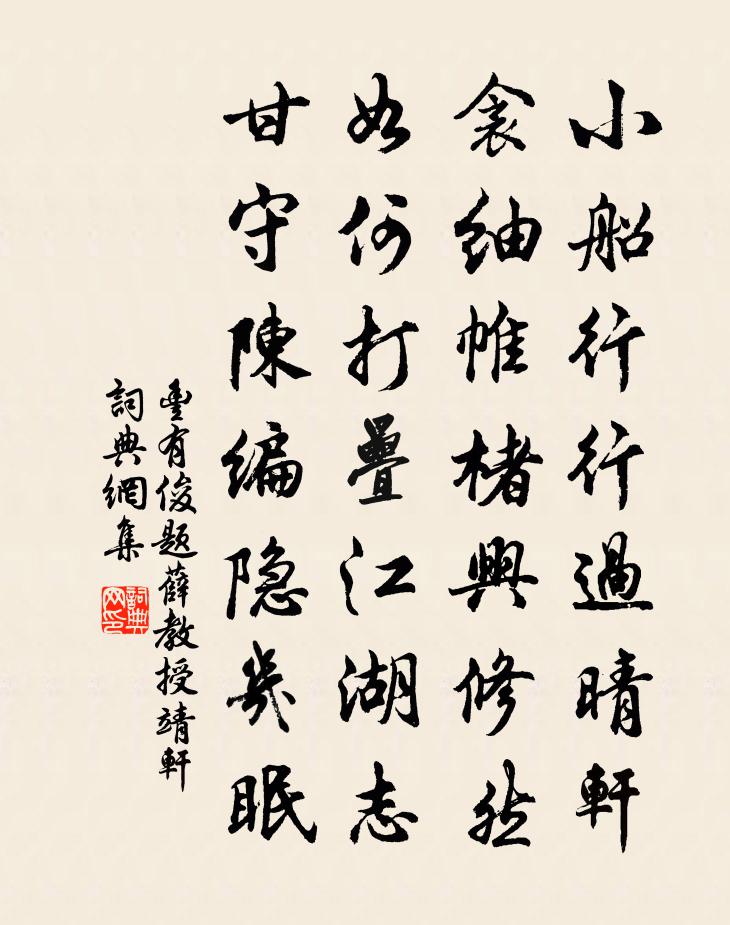 小船行行過晴軒
衾紬帷楮興修然
如何打疊江湖志
甘守陳編隐幾眠
豐有俊题薛教授靖軒
詞典網集
詞典网印